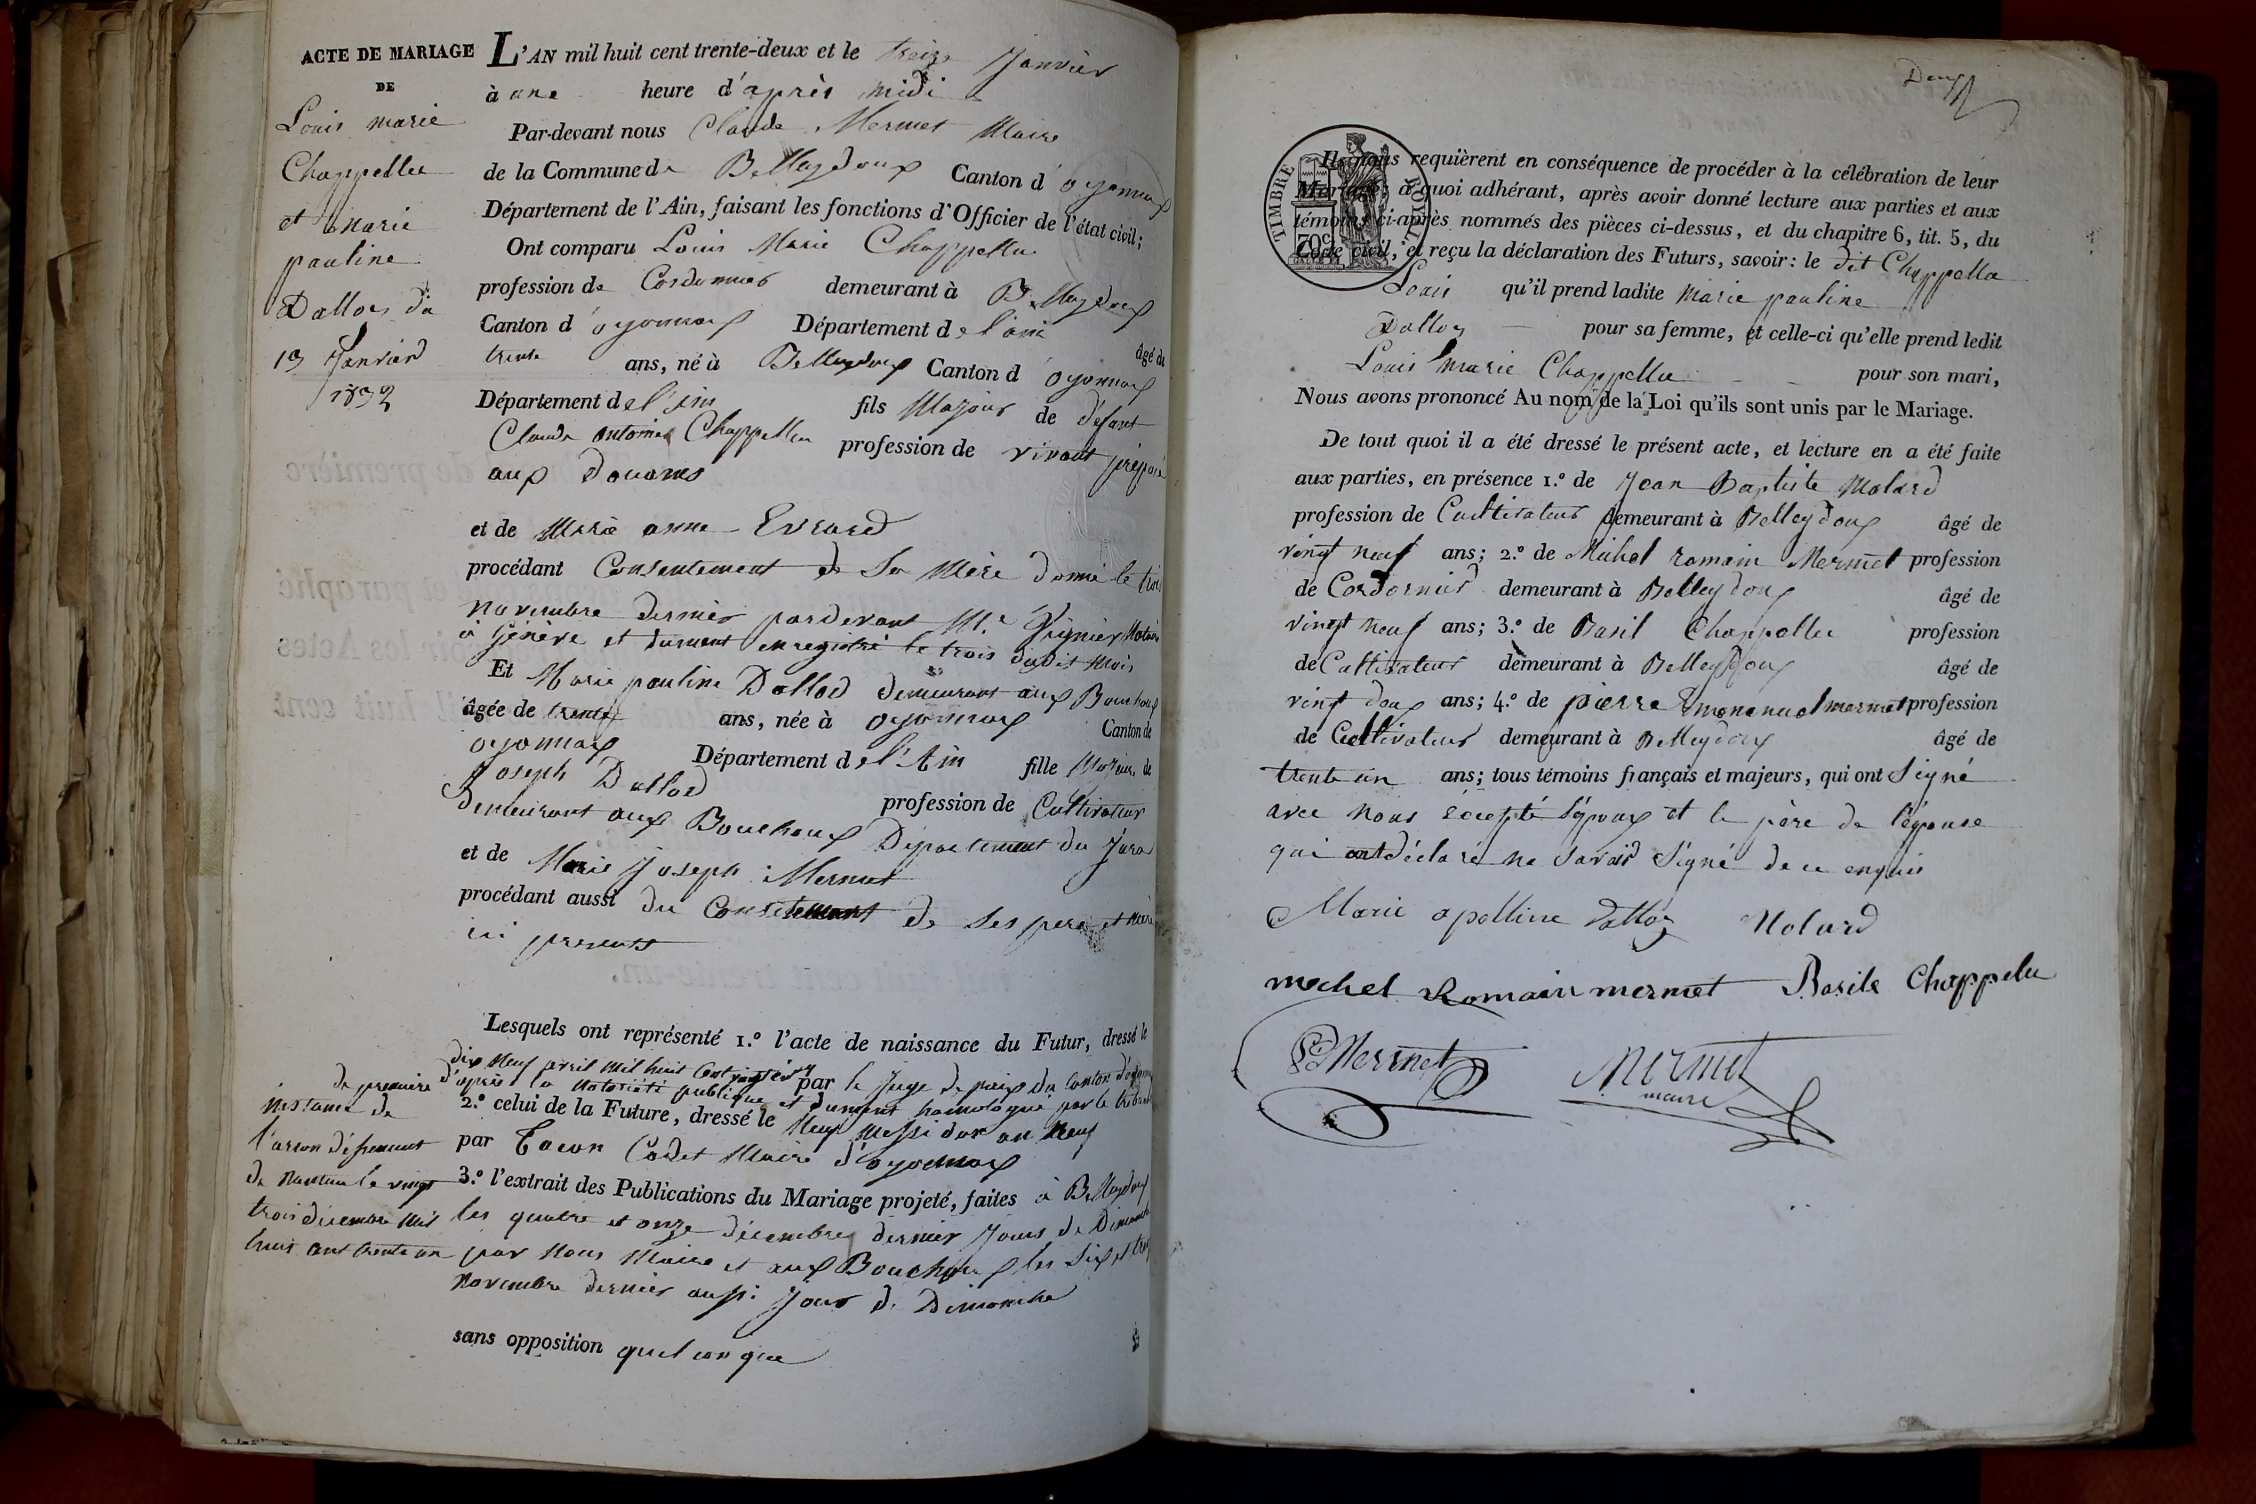 ACTE DE MARIAGE
DE
Louis marie
Chappellu
et Marie
pauline
Dalloz du
13 Janvier
1832
L'AN mil huit cent trente-deux et le treize Janvier
à une heure d'après midi
Par-devant nous Claude Mermet Maire
de la Commune de Belleydoux Canton d'oyonnax
Département de l'Ain, faisant les fonctions d'Officier de l'état civil;
Ont comparu Louis Marie Chappellu
profession de Cordonnier demeurant à Belleydoux
Canton d'oyonnax Département de l'ain âgé de
trente ans, né à Belleydoux Canton d'oyonnax
Département de l'ain fils Majeur de défunt
Claude antoine Chappellu profession de vivant préposé
aux douanes
et de Marie anne Evrard
procédant Consentement de Sa Mère donné le trois
novembre dernier pardevant Me Notaire
à Genève et dument enregistré le trois dudit mois
Et Marie pauline Dallod demeurant aux Bouchoux
âgée de trente ans, née à oyonnax Canton de
oyonnax Département de l'Ain fille Majeure de
Joseph Dallod profession de Cultivateur
Demeurant aux Bouchoux Département du Jura
et de Marie Joseph Mermet
procédant aussi du Consetement de ses pere et mère
ici presents
Lesquels ont représenté 1.º l'acte de naissance du Futur, dressé le
dix Neuf avril mil huit Cent par le Juge de paix du Canton
d'après la Notoriété publique et dument homologué par le tribunal
de premiere
instance de
l'arrondissement
de Nantua le vingt
trois décembre mil
huit cent trente un
2.º celui de la Future, dressé le Neuf Messidor an Neuf
par Tacon Cadet Maire d'oyonnax
3.º l'extrait des Publications du Mariage projeté, faites à Belleydoux
les quatre et onze décembre dernier Jours de Dimanche
par Nous Maire et aux Bouchoux les Six et
Novembre dernier aussi Jour de Dimanche
sans opposition quelconque
Deux
TIMBRE ROYAL
70c
Ils nous requièrent en conséquence de procéder à la célébration de leur
Mariage; à quoi adhérant, après avoir donné lecture aux parties et aux
témoins ci-après nommés des pièces ci-dessus, et du chapitre 6, tit. 5, du
Code civil, et reçu la déclaration des Futurs, savoir: le dit Chappellu
Louis qu'il prend ladite Marie pauline
Dalloz pour sa femme, et celle-ci qu'elle prend ledit
Louis Marie Chappellu pour son mari,
Nous avons prononcé Au nom de la Loi qu'ils sont unis par le Mariage.
De tout quoi il a été dressé le présent acte, et lecture en a été faite
aux parties, en présence 1.º de Jean Baptiste Molard
profession de Cultivateur demeurant à Belleydoux âgé de
vingt neuf ans; 2.º de Michel romain Mermet profession
de Cordonnier demeurant à Belleydoux âgé de
vingt neuf ans; 3.º de Basil Chappellu profession
de Cultivateur demeurant à Belleydoux âgé de
vingt deux ans; 4.º de pierre Emmanuel mermet profession
de Cultivateur demeurant à Belleydoux âgé de
trente un ans; tous témoins français et majeurs, qui ont Signé
avec Nous éxcepté l'époux et le père de l'épouse
qui ont déclaré ne savoir Signé de ce enquis
Marie apolline Dalloz Molard
michel Romain mermet Basile Chappelu
Mermet
Mermet
maire